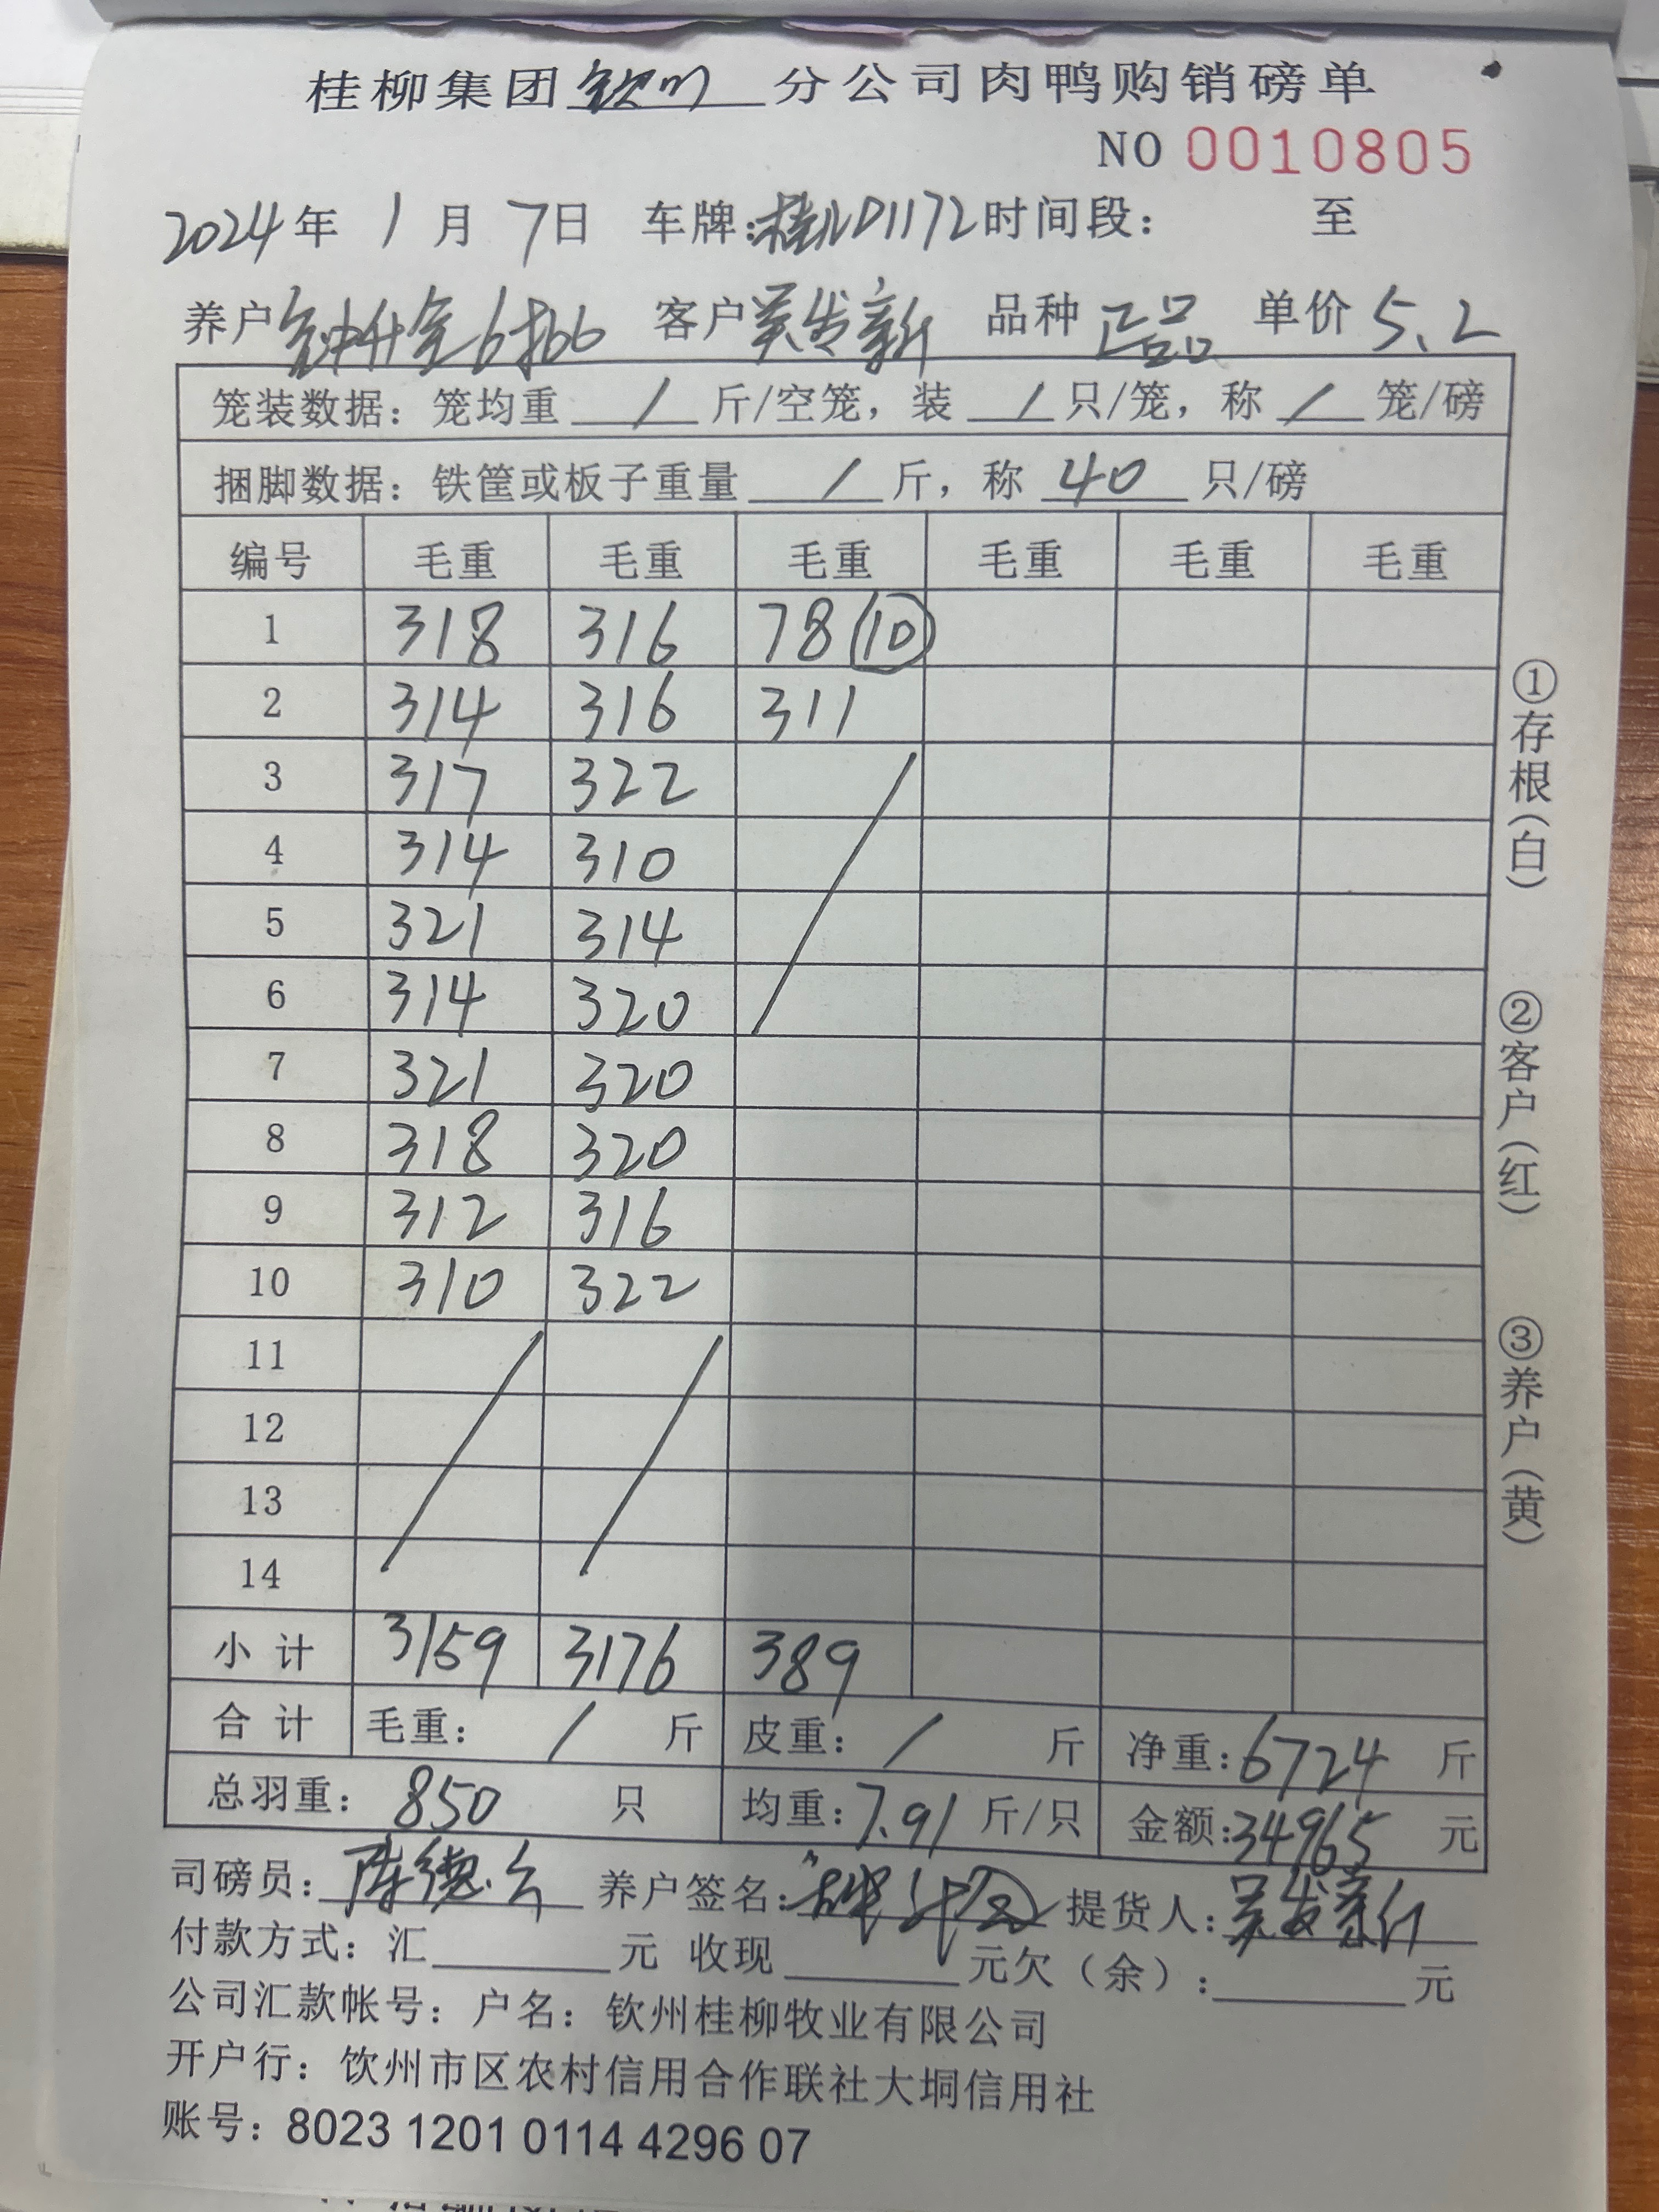 桂柳集团钦州分公司肉鸭购销磅单
NO 0010805
2024年 1月 7日 车牌:桂ND1172时间段: 至
养户钟升金6批6 客户吴发新 品种 正品 单价5.2
笼装数据:笼均重 / 斤/空笼,装 / 只/笼,称 / 笼/磅
捆脚数据:铁筐或板子重量 / 斤,称 40 只/磅
编号 毛重 毛重 毛重 毛重 毛重 毛重
1 318 316 78 (10)
2 314 316 311
3 317 322
4 314 310
5 321 314
6 314 320
7 321 320
8 318 320
9 312 316
10 310 322
11
12
13
14
小计 3159 3176 389
合计 毛重: / 斤 皮重: / 斤 净重:6724 斤
总羽重: 850 只 均重:7.91 斤/只 金额:34965 元
司磅员: 陈德 养户签名: 提货人:吴发新
付款方式:汇 元 收现 元欠(余): 元
公司汇款帐号:户名:钦州桂柳牧业有限公司
开户行:饮州市区农村信用合作联社大垌信用社
账号:8023 1201 0114 4296 07
①存根(白)
②客户(红)
③养户(黄)